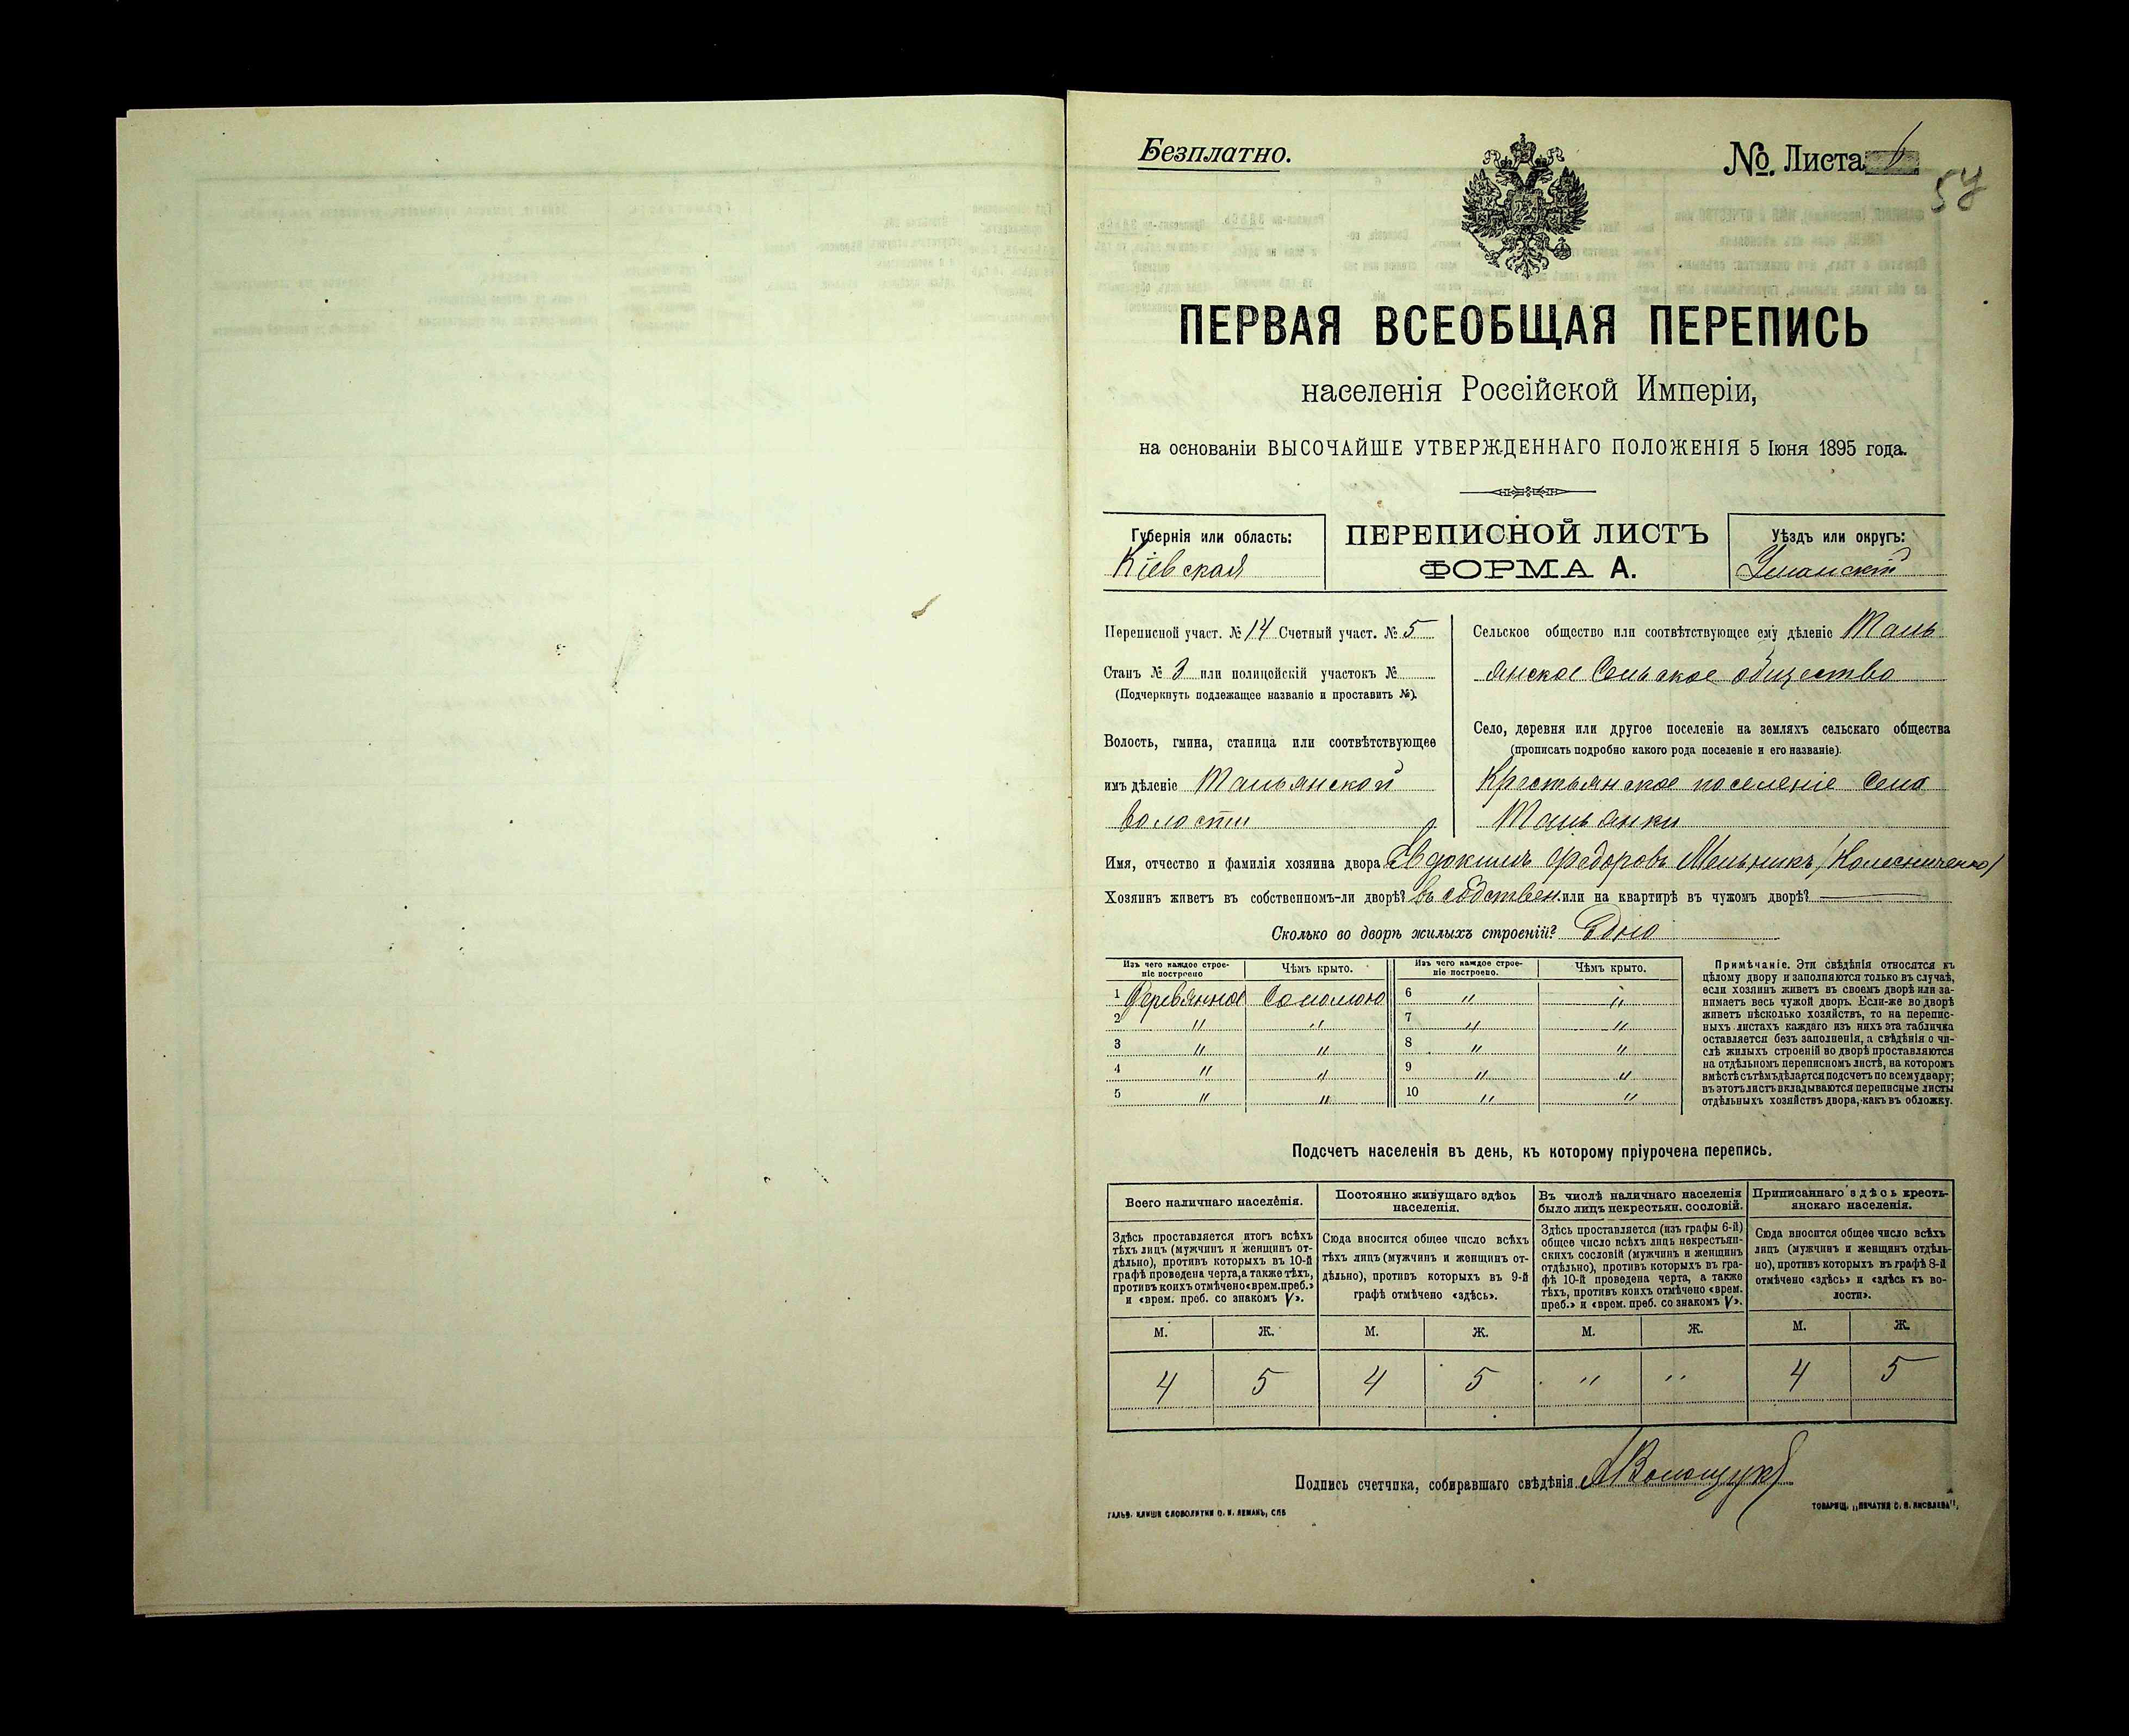 Безплатно.
№. Листа 6
57
ПЕРВАЯ ВСЕОБЩАЯ ПЕРЕПИСЬ
населенія Россійской Имперіи,
на основаніи ВЫСОЧАЙШЕ УТВЕРЖДЕННАГО ПОЛОЖЕНІЯ 5 Іюня 1895 года.
Губернія или область:
Кіевская
ПЕРЕПИСНОЙ ЛИСТЪ
ФОРМА А.
Уѣздъ или округъ:
Уманскій
Переписной участ. № 14 Счетный участ. № 5
Станъ № 3 или полицейскій участокъ №
(Подчеркнуть подлежащее названіе и проставить №).
Волость, гмина, станица или соотвѣтствующее
имъ дѣленіе Тальянской
волости
Сельское общество или соотвѣтствующее ему дѣленіе Таль
янское Сельское общество
Село, деревня или другое поселеніе на земляхъ сельскаго общества
(прописать подробно какого рода поселеніе и его названіе).
Крестьянское поселеніе Село
Тальянки
Имя, отчество и фамилія хозяина двора Евдокимъ Федоровъ Мельникъ /Колесниченко/
Хозяинъ живетъ въ собственномъ-ли дворѣ? въ собствен. или на квартирѣ въ чужомъ дворѣ?
Сколько во дворѣ жилыхъ строеній? Одно
Изъ чего каждое строе-
ніе построено
Чѣмъ крыто.
Изъ чего каждое строе-
ніе построено.
Чѣмъ крыто.
1 Деревянное Соломою 6 " "
2 " " 7 " "
3 " " 8 " "
4 " " 9 " "
5 " " 10 " "
Примѣчаніе. Эти свѣдѣнія относятся къ
цѣлому двору и заполняются только въ случаѣ,
если хозяинъ живетъ въ своемъ дворѣ или за-
нимаетъ весь чужой дворъ. Если-же во дворѣ
живетъ нѣсколько хозяйствъ, то на перепис-
ныхъ листахъ каждаго изъ нихъ эта табличка
оставляется безъ заполненія, а свѣдѣнія о чи-
слѣ жилыхъ строеній во дворѣ проставляются
на отдѣльномъ переписномъ листѣ, на которомъ
вмѣстѣ съ тѣмъ дѣлается подсчетъ по всему двору;
въ этотъ листъ вкладываются переписные листы
отдѣльныхъ хозяйствъ двора, какъ въ обложку.
Подсчетъ населенія въ день, къ которому пріурочена перепись.
Всего наличнаго населенія.
Здѣсь проставляется итогъ всѣхъ
тѣхъ лицъ (мужчинъ и женщинъ от-
дѣльно), противъ которыхъ въ 10-й
графѣ проведена черта, а также тѣхъ,
противъ коихъ отмѣчено «врем. преб.»
и «врем. преб. со знакомъ V».
Постоянно живущаго здѣсь
населенія.
Сюда вносится общее число всѣхъ
тѣхъ лицъ (мужчинъ и женщинъ от-
дѣльно), противъ которыхъ въ 9-й
графѣ отмѣчено «здѣсь».
Въ числѣ наличнаго населенія
было лицъ некрестьян. сословій.
Здѣсь проставляется (изъ графы 6-й)
общее число всѣхъ лицъ некрестьян-
скихъ сословій (мужчинъ и женщинъ
отдѣльно), противъ которыхъ въ гра-
фѣ 10-й проведена черта, а также
тѣхъ, противъ коихъ отмѣчено «врем.
преб.» и «врем. преб. со знакомъ V».
Приписаннаго здѣсь кресть-
янскаго населенія.
Сюда вносится общее число всѣхъ
лицъ (мужчинъ и женщинъ отдѣль-
но), противъ которыхъ въ графѣ 8-й
отмѣчено «здѣсь» и «здѣсь къ во-
лости».
М. Ж. М. Ж. М. Ж. М. Ж.
4 5 4 5 " " 4 5
Подпись счетчика, собиравшаго свѣдѣнія АВолощукъ
ГАЛЬВ. КЛИШЕ СЛОВОЛИТНИ О. И. ЛЕМАНЪ, СПБ
ТОВАРИЩ. „ПЕЧАТНЯ С. П. ЯКОВЛЕВА",